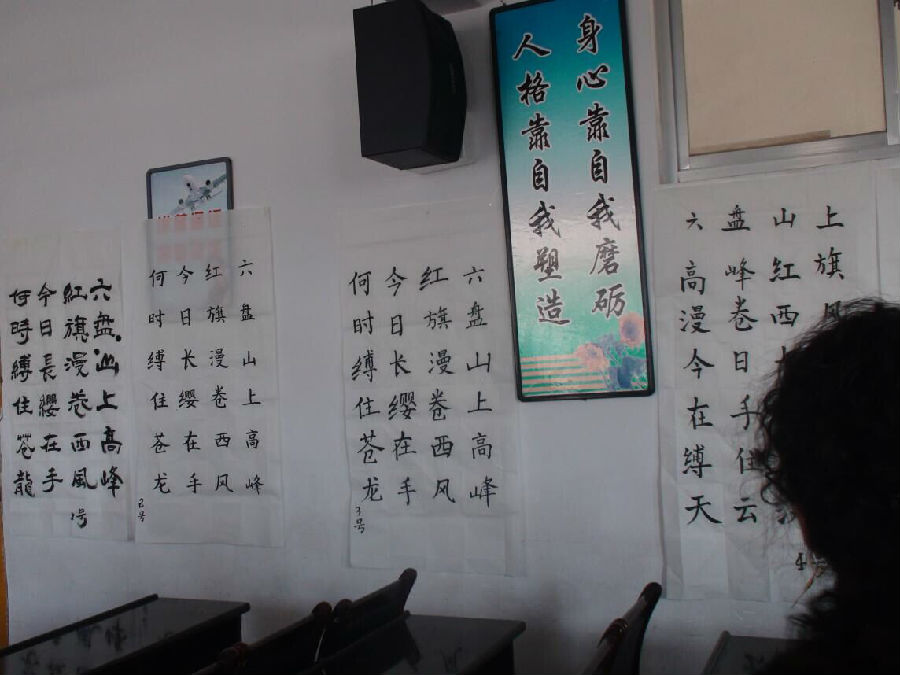 六盘山上高峰
紅旗漫卷西風
今日長纓在手
何時縛住苍龍
1号
六盘山上高峰
红旗漫卷西风
今日长缨在手
何时缚住苍龙
2号
六盘山上高峰
红旗漫卷西风
今日长缨在手
何时缚住苍龙
3号
身心靠自我磨砺
人格靠自我塑造
六盘山上
高峰红旗
漫卷西风
今日长
在手
缚住
天云
4